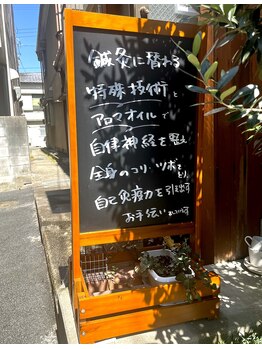 鍼灸に替わる
特殊技術と
アロマオイルで
自律神経を整え
全身のコリ・ツボをとり、
自己免疫力を引き出す
お手伝い